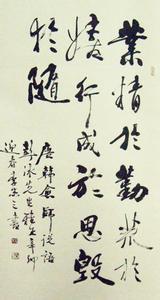 業精於勤荒於
嬉行成於思毀
於隨
唐韓愈師說語
先生辛卯
迎春李書